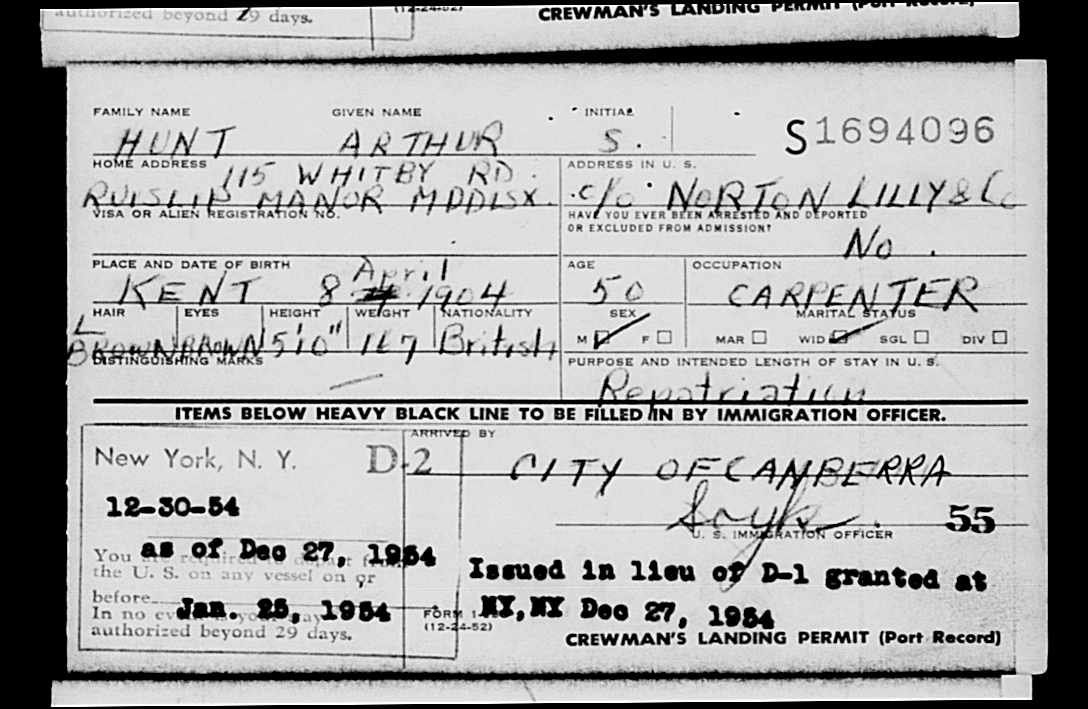 authorized beyond 29 days.
(12-24-52)
CREWMAN'S LANDING PERMIT (Port Record)
FAMILY NAME GIVEN NAME INITIAL
HUNT ARTHUR S. S1694096
HOME ADDRESS ADDRESS IN U. S.
115 WHITBY RD.
RUISLIP MANOR MDDLSX. c/o NORTON LILLY & Co
VISA OR ALIEN REGISTRATION NO. HAVE YOU EVER BEEN ARRESTED AND DEPORTED
OR EXCLUDED FROM ADMISSION?
No.
PLACE AND DATE OF BIRTH AGE OCCUPATION
April
KENT 8 1904 50 CARPENTER
HAIR EYES HEIGHT WEIGHT NATIONALITY SEX MARITAL STATUS
L
BROWN BROWN 5'10" 167 British M F MAR WID SGL DIV
DISTINGUISHING MARKS PURPOSE AND INTENDED LENGTH OF STAY IN U. S.
Repatriation
ITEMS BELOW HEAVY BLACK LINE TO BE FILLED IN BY IMMIGRATION OFFICER.
ARRIVED BY
New York, N. Y. D-2 CITY OF CANBERRA
12-30-54
55
U. S. IMMIGRATION OFFICER
as of Dec 27, 1954
You are required to depart from
the U. S. on any vessel on or
Issued in lieu of D-1 granted at
before
Jan. 25, 1954 NY, NY Dec 27, 1954
In no event may you stay FORM
(12-24-52)
authorized beyond 29 days. CREWMAN'S LANDING PERMIT (Port Record)